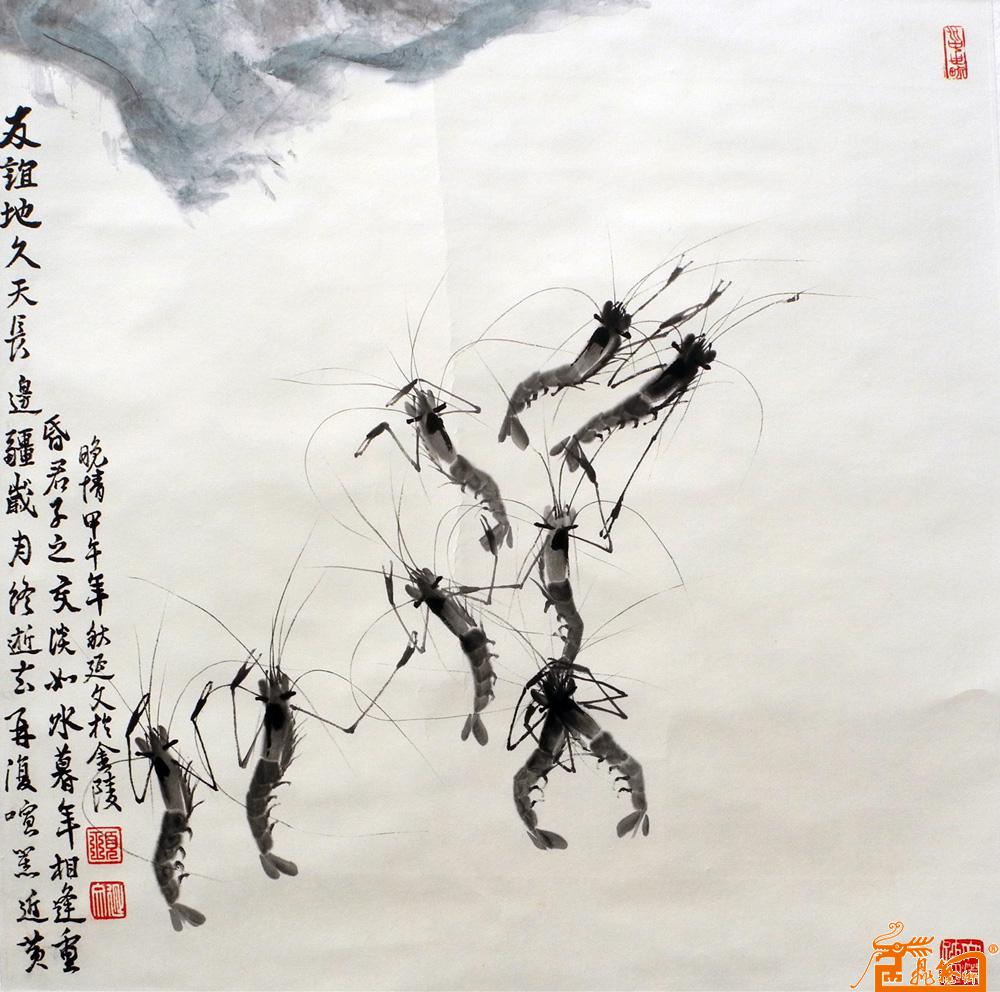 友誼地久天長邊疆歲月終逝去再復喧嚣近黄
昏君子之交淡如水暮年相逢重
晚情甲午年秋延文於金陵